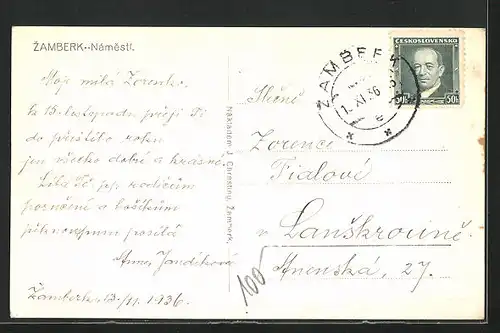 ŽAMBERK.-Náměstí.
Moje milá Zorenko,
k 15. listopadu přeji Ti
do příštího roku
jen všecko dobré a krásné.
Líbá Tě, pp. rodičům
poručení a
posílá
Anna Jandíková
Žamberk, 13./11. 1936.
Nákladem J. Chrastiny, Žamberk.
ČESKOSLOVENSKO
50h 50h
ŽAMBERK
1. XI. 36
Slečně
Zorence
Fialové
v Lanškrouně.
Anenská, 27.
100